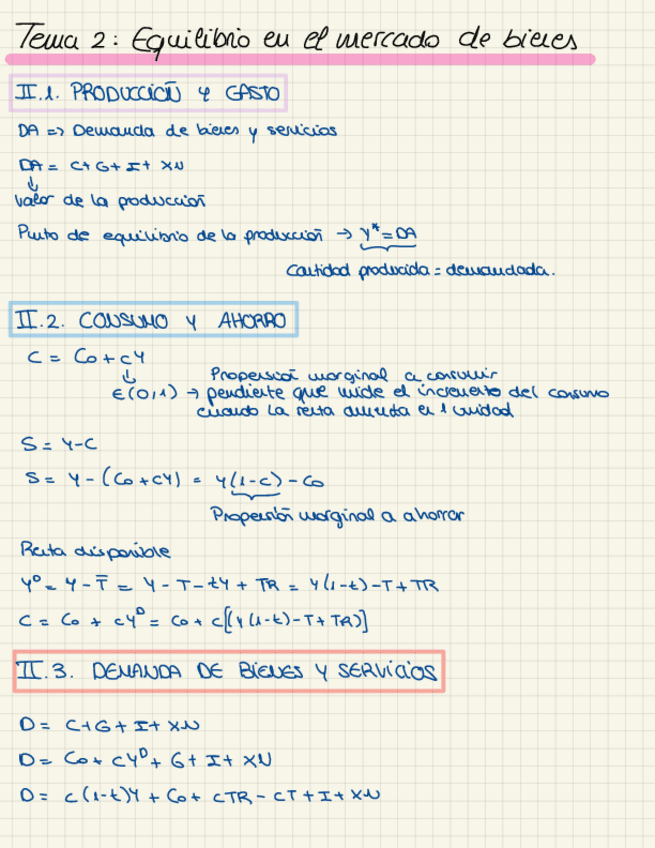 Tema 2: Equilibrio en el mercado de bienes
II.1. PRODUCCIÓN Y GASTO
DA => Demanda de bienes y servicios
DA = C+G+I+XN
↓
valor de la producción
Punto de equilibrio de la producción → Y* = DA
Cantidad producida = demandada.
II.2. CONSUMO Y AHORRO
C = Co + cY
↓
Propensión marginal a consumir
∈(0,1) → pendiente que mide el incremento del consumo
cuando la renta aumenta en 1 unidad
S = Y-C
S = Y - (Co + cY) = Y(1-c) - Co
Propensión marginal a ahorrar
Renta disponible
Yᴰ = Y - T̅ = Y - T - tY + TR = Y(1-t) - T + TR
C = Co + cYᴰ = Co + c[(Y(1-t) - T + TR)]
II.3. DEMANDA DE BIENES Y SERVICIOS
D = C+G+I+XN
D = Co + cYᴰ + G + I + XN
D = c(1-t)Y + Co + cTR - cT + I + XN